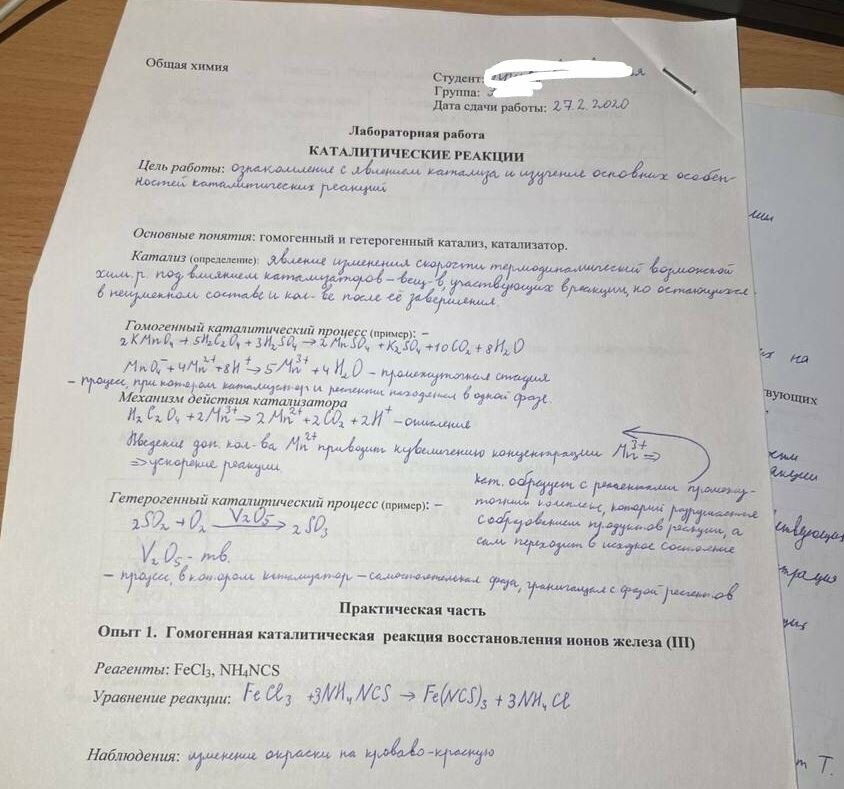 Общая химия
Студент:
Группа:
Дата сдачи работы: 27.2.2020
Лабораторная работа
КАТАЛИТИЧЕСКИЕ РЕАКЦИИ
Цель работы: ознакомление с явлением катализа и изучение основних особен-
ностей каталитических реакций
Основные понятия: гомогенный и гетерогенный катализ, катализатор.
Катализ (определение): явление изменения скорости термодинамический возможской
хим.р. под влиянием катализаторов – вещ-в, участвующих в реакции, но остающихся
в неизменном составе и кол-ве после её завершения.
Гомогенный каталитический процесс (пример): –
2KMnO₄ + 5H₂C₂O₄ + 3H₂SO₄ → 2MnSO₄ + K₂SO₄ + 10CO₂ + 8H₂O
MnO₄⁻ + 4Mn²⁺ + 8H⁺ → 5Mn³⁺ + 4H₂O – промежуточная стадия
– процесс, при котором катализатор и реагенты находятся в одной фазе.
Механизм действия катализатора
H₂C₂O₄ + 2Mn³⁺ → 2Mn²⁺ + 2CO₂ + 2H⁺ – окисление
Введение доп. кол-ва Mn²⁺ приводит к увеличению концентрации Mn³⁺ ⇒
⇒ ускорение реакции.
кат. образует с реагентами промежу-
точний комплекс, который разрушается
с образованием продуктов реакции, а
сам переходит в исходное состояние
Гетерогенный каталитический процесс (пример): –
2SO₂ + O₂ V₂O₅ → 2SO₃
V₂O₅ – тв.
– процесс, в котором катализатор – самостоятельная фаза, граничащая с фазой реагентов
Практическая часть
Опыт 1. Гомогенная каталитическая реакция восстановления ионов железа (III)
Реагенты: FeCl₃, NH₄NCS
Уравнение реакции: FeCl₃ + 3NH₄NCS → Fe(NCS)₃ + 3NH₄Cl
Наблюдения: изменение окраски на кроваво-красную
их на
вующих
акции
трация
т Т.